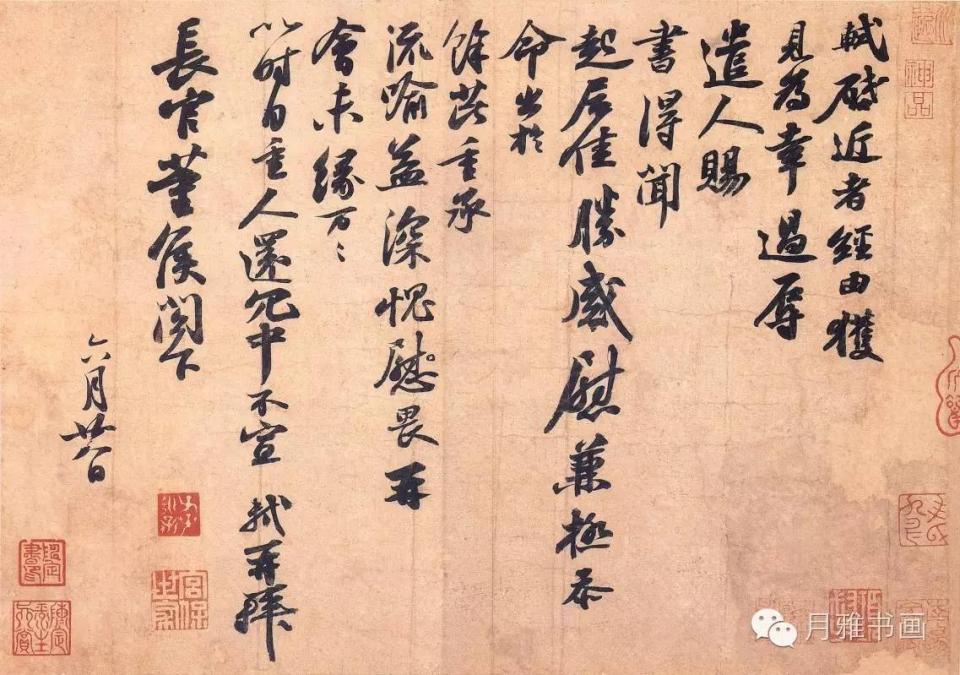 軾啟近者經由獲
見為幸過辱
遣人賜
書得聞
起居佳勝感慰兼極忝
命出於
餘芘重承
流喻益深愧慰畏再
會未緣万〻
以时自重人還冗中不宣 軾再拜
長官董侯閣下
六月廿八日
神品
宮保世家
月雅书画